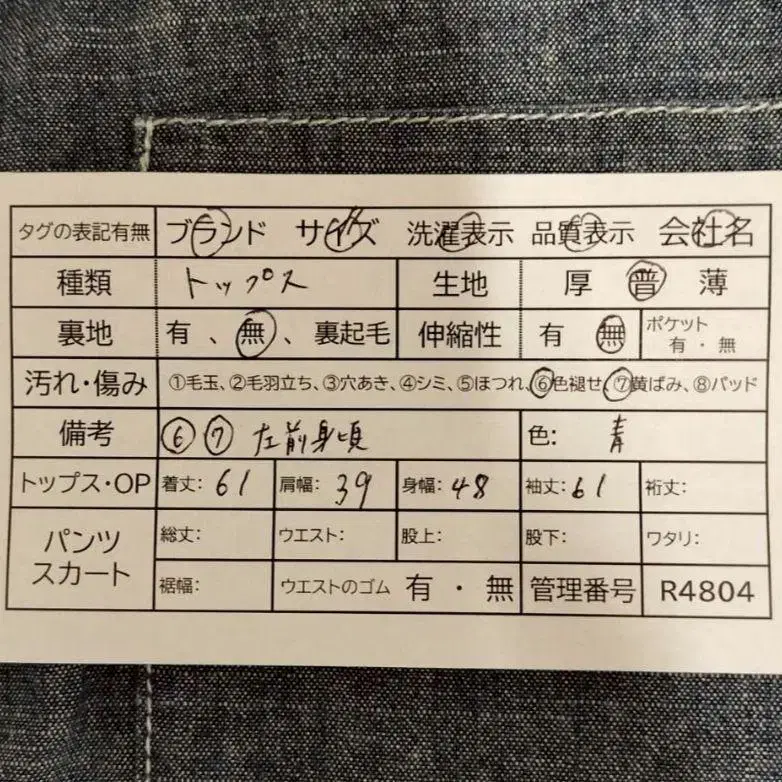 タグの表記有無 ブランド サイズ 洗濯表示 品質表示 会社名
種類 トップス 生地 厚 普 薄
裏地 有、無、裏起毛 伸縮性 有 無 ポケット 有・無
汚れ・傷み ①毛玉、②毛羽立ち、③穴あき、④シミ、⑤ほつれ、⑥色褪せ、⑦黄ばみ、⑧パッド
備考 ⑥ ⑦ 左前身頃 色: 青
トップス・OP 着丈: 61 肩幅: 39 身幅: 48 袖丈: 61 裄丈:
パンツ スカート 総丈: ウエスト: 股上: 股下: ワタリ:
裾幅: ウエストのゴム 有・無 管理番号 R4804